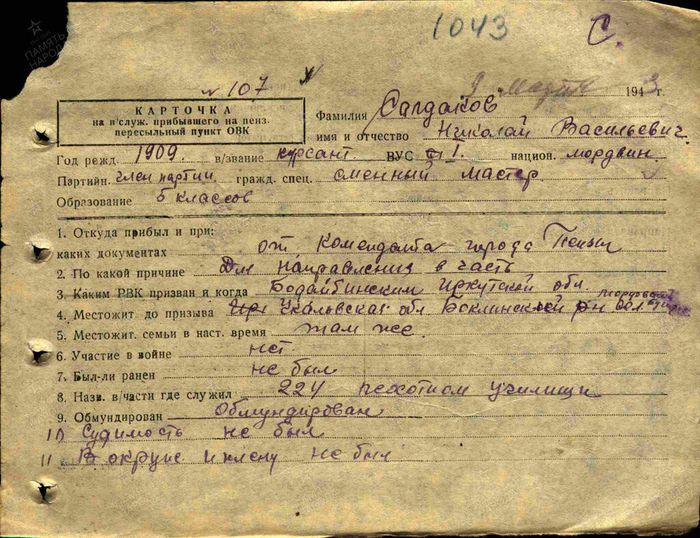 ПАМЯТЬ НАРОДА
1043 С.
№ 107
9 марта 1943 г.
КАРТОЧКА
на в/служ. прибывшего на пенз.
пересыльный пункт ОВК
Фамилия Салдаков
имя и отчество Николай Васильевич
Год режд. 1909. в/звание курсант ВУС I. национ. мордвин
Партийн. член партии гражд. спец. сменный мастер
Образование 5 классов
1. Откуда прибыл и при:
каких документах от Коменданта города Пензы
2. По какой причине Для направления в часть
3. Каким РВК призван и когда Бодайбинским Иркутской обл.
4. Местожит. до призыва Чкаловская обл. Боклинской рн
5. Местожит. семьи в наст. время там же.
6. Участие в войне нет
7. Был-ли ранен не был
8. Назв. в/части где служил 224 пехотном училищи
9. Обмундирован Обмундирован
Судимость не был
В окруже и плену не был